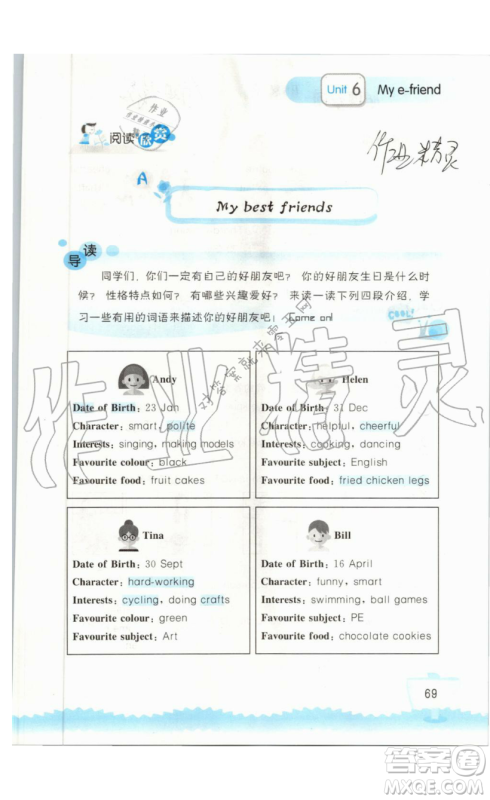 Unit 6 My e-friend
作业
阅读欣赏
作业精灵
A
My best friends
导读
同学们，你们一定有自己的好朋友吧？ 你的好朋友生日是什么时
候？ 性格特点如何？ 有哪些兴趣爱好？ 来读一读下列四段介绍，学
习一些有用的词语来描述你的好朋友吧！ Come on!
COOL!
Andy
Date of Birth: 23 Jan
Character: smart, polite
Interests: singing, making models
Favourite colour: black
Favourite food: fruit cakes
Helen
Date of Birth: 31 Dec
Character: helpful, cheerful
Interests: cooking, dancing
Favourite subject: English
Favourite food: fried chicken legs
Tina
Date of Birth: 30 Sept
Character: hard-working
Interests: cycling, doing crafts
Favourite colour: green
Favourite subject: Art
Bill
Date of Birth: 16 April
Character: funny, smart
Interests: swimming, ball games
Favourite subject: PE
Favourite food: chocolate cookies
作业精灵
69
答案圈
MXQE.COM